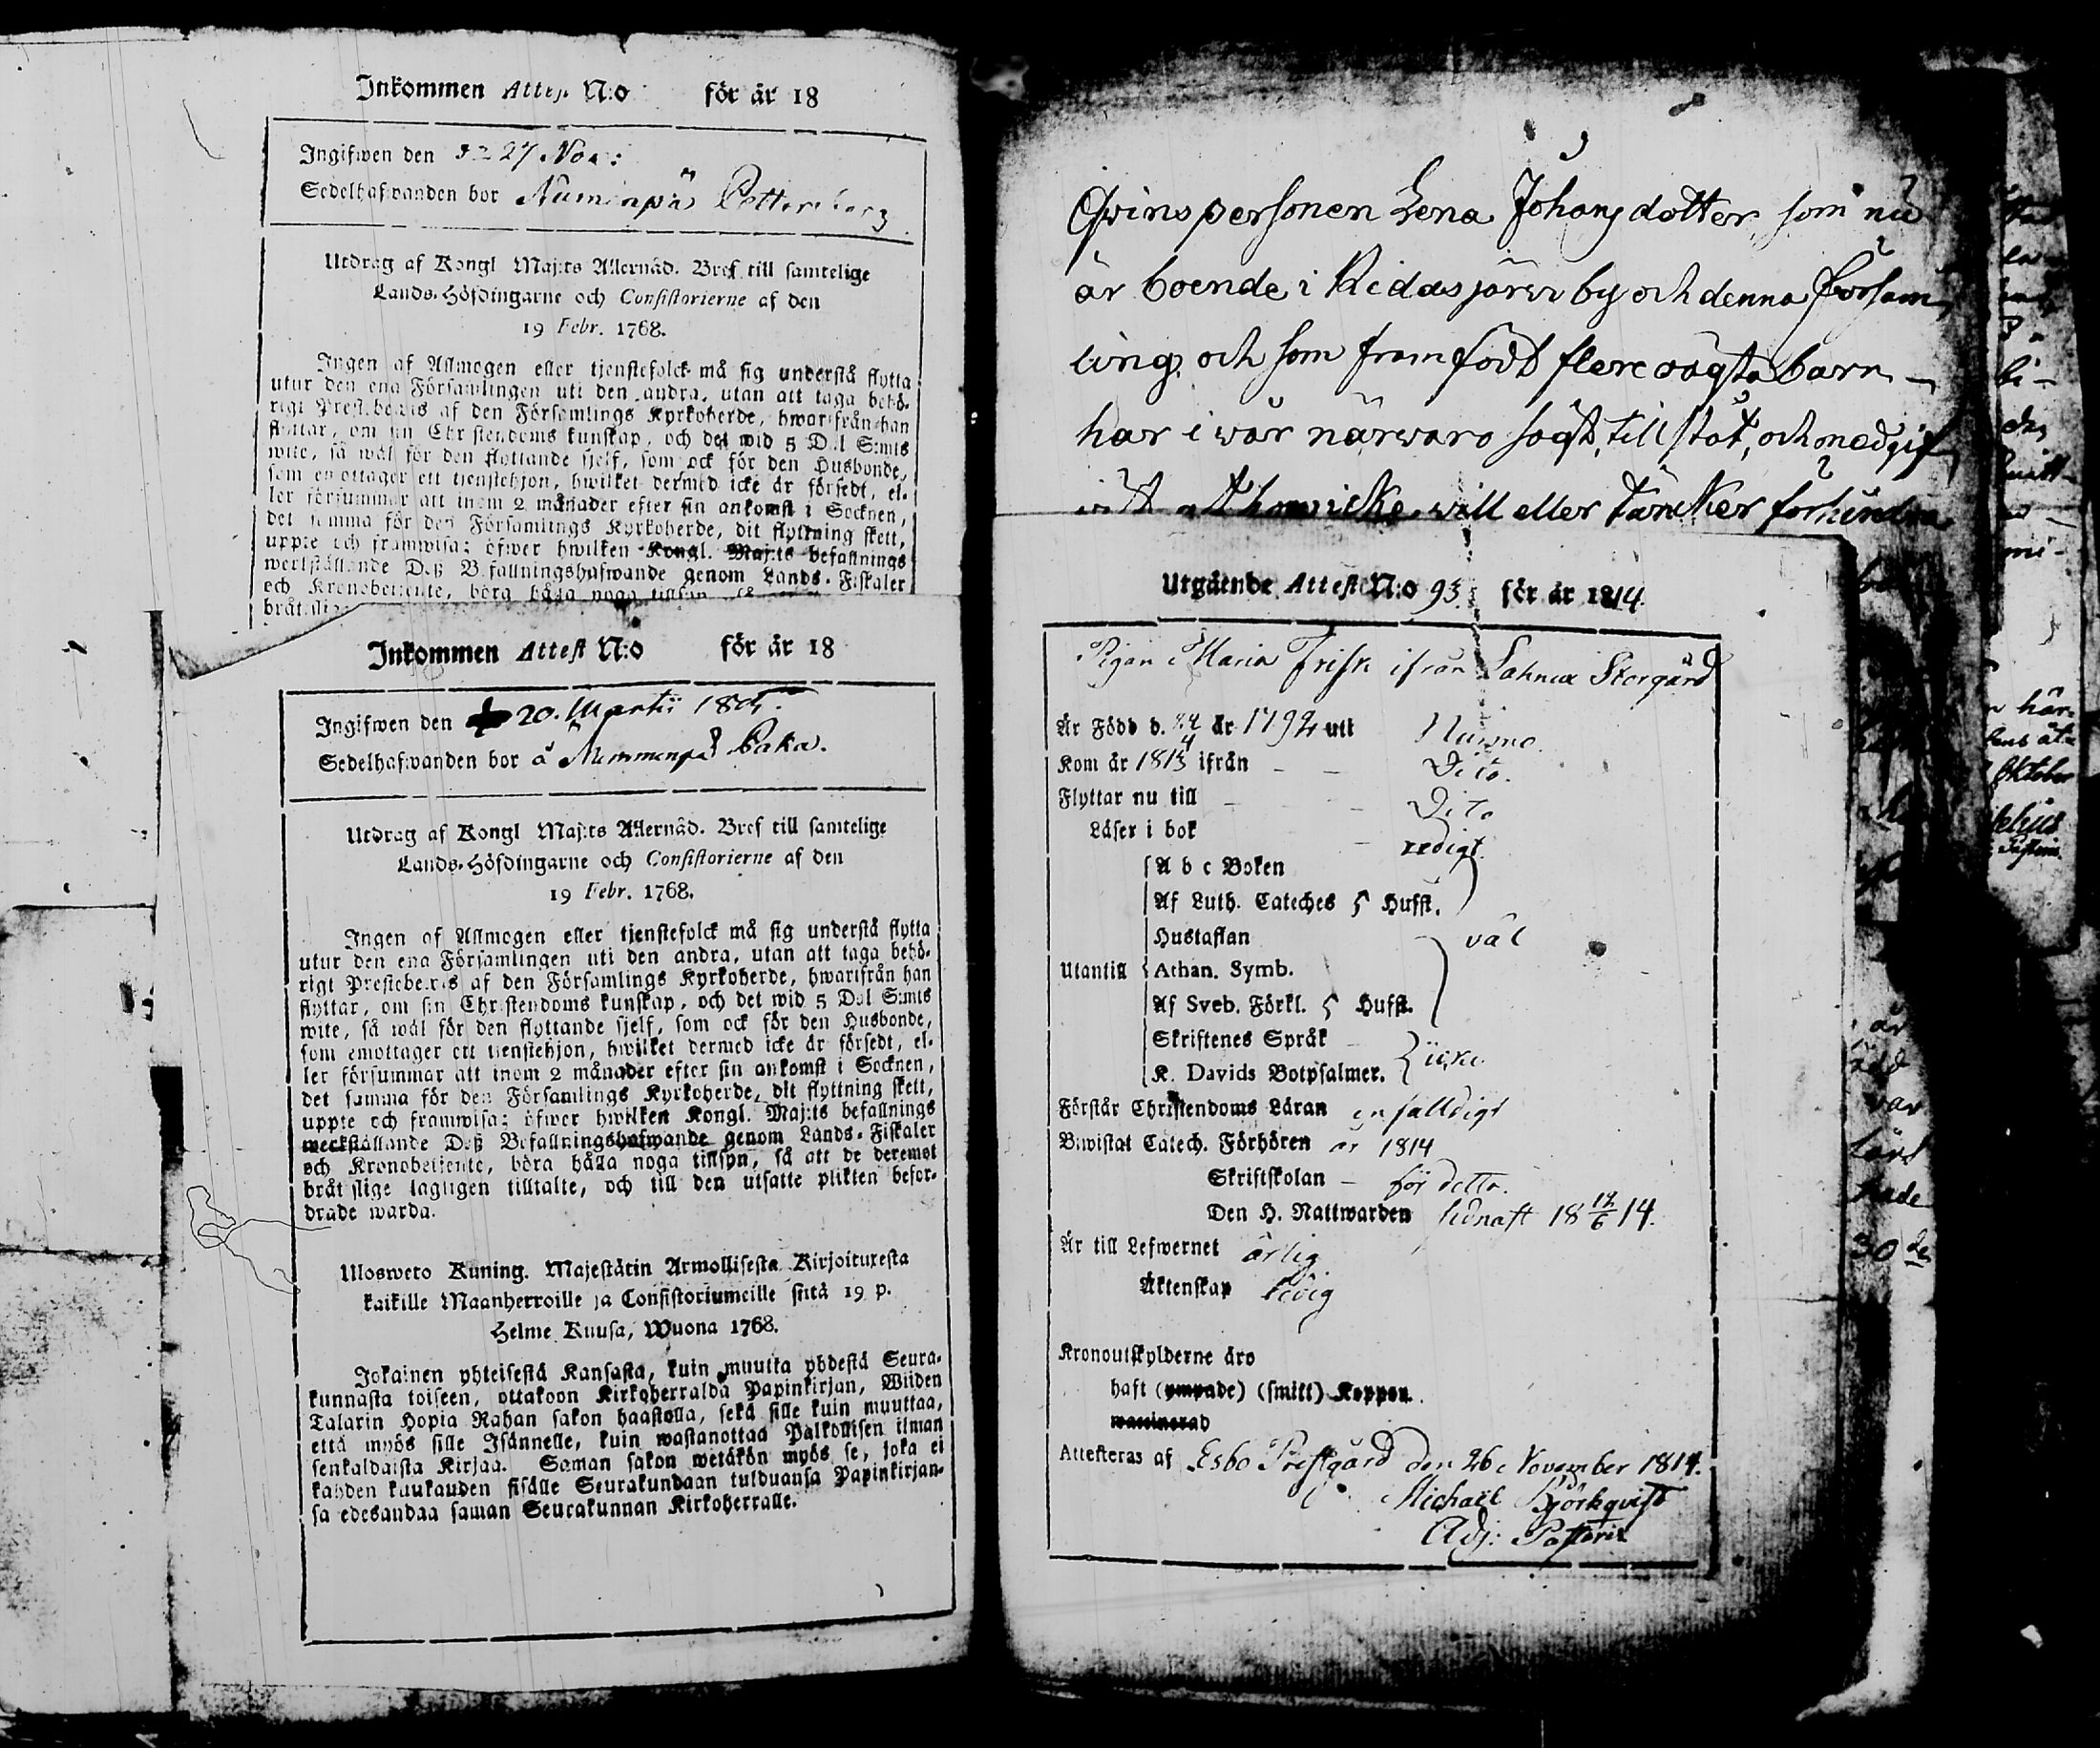 Inkommen Attest N:o för år 18
Ingifwen den 27 Nov:
Sedelhafwanden bor Numinpä Pettersberg
Utdrag af Kongl Maj:ts Allernåd. Bref till samtelige
Lands-Höfdingarne och Consistorierne af den
19 Febr. 1768.
Ingen af Allmogen eller tjenstefolck må sig understå flytta
utur den ena Församlingen uti den andra, utan att taga behö-
rigt Prestebewis af den Församlings Kyrkoherde, hwarifrån han
flyttar, om sin Christendoms kunskap, och det wid 5 Dal S:mts
wite, så wäl för den flyttande sjelf, som ock för den Husbonde,
som emottager ett tjenstehjon, hwilket dermed icke är försedt, el-
ler försummar att inom 2 månader efter sin ankomst i Socknen,
det samma för den Församlings Kyrkoherde, dit flyttning skett,
uppte och framwisa; öfwer hwilken Kongl. Maj:ts befallnings
werkställande Deß Befallningshafwande genom Lands-Fiskaler
och Kronobetjente, böra hålla noga tillsyn, så
bråtslige
Inkommen Attest N:o för år 18
Ingifwen den 20. Martii
Sedelhafwanden bor å Nummenpä Baka.
Utdrag af Kongl Maj:ts Allernåd. Bref till samtelige
Lands-Höfdingarne och Consistorierne af den
19 Febr. 1768.
Ingen af Allmogen eller tjenstefolck må sig understå flytta
utur den ena Församlingen uti den andra, utan att taga behö-
rigt Prestebewis af den Församlings Kyrkoherde, hwarifrån han
flyttar, om sin Christendoms kunskap, och det wid 5 Dal S:mts
wite, så wäl för den flyttande sjelf, som ock för den Husbonde,
som emottager ett tienstehjon, hwilket dermed icke är försedt, el-
ler försummar att inom 2 månader efter sin ankomst i Socknen,
det samma för den Församlings Kyrkoherde, dit flyttning skett,
uppte och framwisa; öfwer hwilken Kongl. Maj:ts befallnings
werkställande Deß Befallningshafwande genom Lands-Fiskaler
och Kronobetjente, böra hålla noga tillsyn, så att de deremot
bråtslige lagligen tilltalte, och till den utsatte plikten befor-
drade warda.
Ulosweto Kuning. Majestätin Armollisesta Kirjoituxesta
kaikille Maanherroille ja Consistoriumeille siitä 19 p.
Helme Kuusa, Wuona 1768.
Jokainen yhteisestä Kansasta, kuin muutta yhdestä Seura-
kunnasta toiseen, ottakoon Kirkoherralda Papinkirjan, Wiiden
Talarin Hopia Rahan sakon haastolla, sekä sille kuin muuttaa,
että myös sille Isännelle, kuin wastanottaa Palkollisen ilman
senkaldaista Kirjaa. Saman sakon wetäkön myös se, joka ei
kahden kuukauden sisälle Seurakundaan tulduansa Papinkirjan-
sa edesandaa saman Seurakunnan Kirkoherralle.
Qwinspersonen Lena Johansdotter, som nu
är boende i Kidasjärwi by och denna Försam
ling, och som framfödt flere oägta barn
har i wår närwaro sagt, tillstått, och medgif
will eller täncker förhindra
Utgående Attest N:o 93. för år 1814.
Pigan Maria Frisk ifrån Lahnus Storgård
Är Född d. 24/4 år 1792 utt Nurmo.
Kom år 1813 ifrån Dito.
Flyttar nu till Dito
Läser i bok redigt
A b c Boken
Af Luth. Cateches 5 Hufst.
Hustaflan väl
Utantill Athan. Symb.
Af Sveb. Förkl. 5 Hufst.
Skriftenes Språk
K. Davids Botpsalmer. icke
Förstår Christendoms Läran enfalldigt
Biwistat Catech. Förhören år 1814
Skriftskolan för detta.
Den H. Nattwarden sidnast 18 17/6 14.
Är till Lefwernet ärlig
Äktenskap ledig
Kronoutskylderne äro
haft (ympade) (smitt) Koppor.
waccinerad
Attesteras af Esbo Prestgård den 26 November 1814.
Michaël Björkqvist
Adj: Pastoris